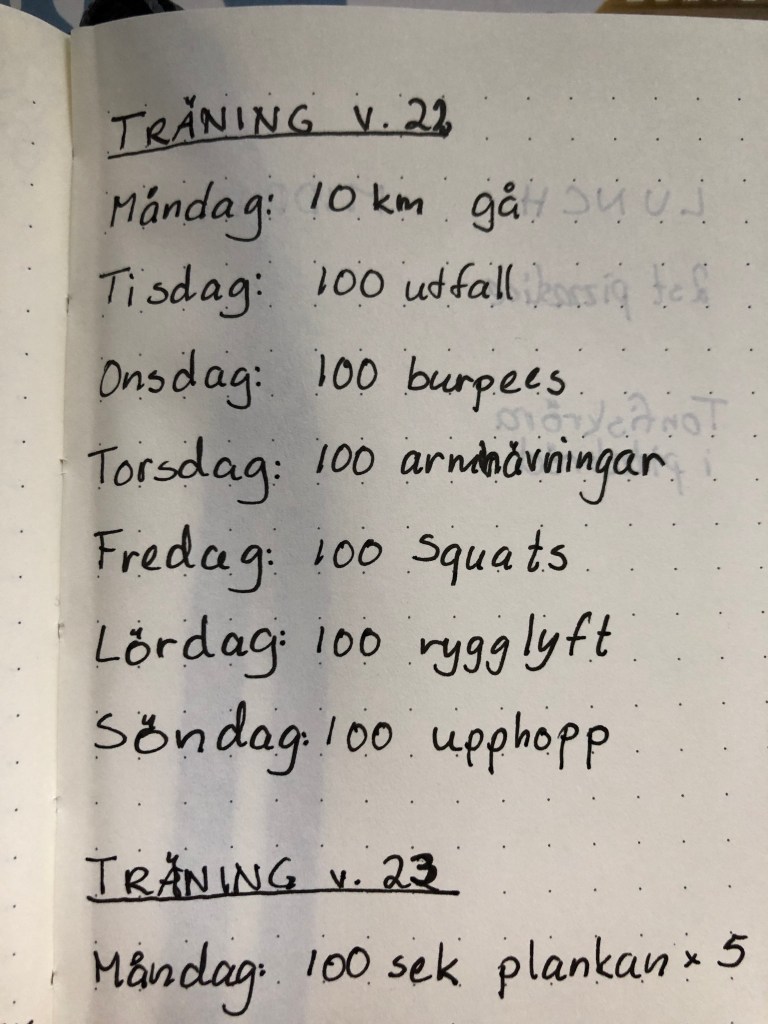 TRÄNING v. 22
Måndag: 10 km gå
Tisdag: 100 utfall
Onsdag: 100 burpees
Torsdag: 100 armhävningar
Fredag: 100 squats
Lördag: 100 rygglyft
Söndag: 100 upphopp
TRÄNING v. 23
Måndag: 100 sek plankan x 5